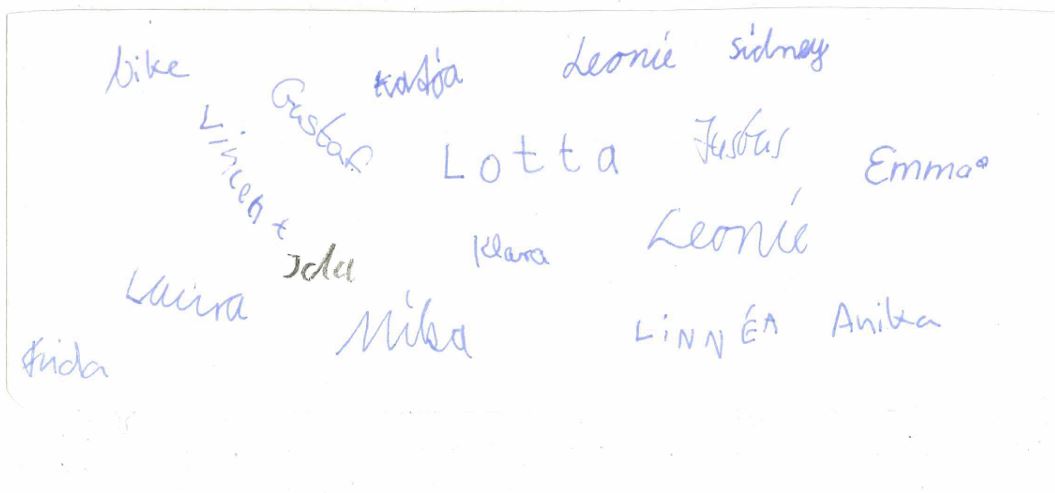 Katja
Leonie
Sidney
Gustaf
Vincent
Lotta
Justus
Emma
Ida
Klara
Leonie
Laura
Mika
LiNNÉA
Anika
Frida